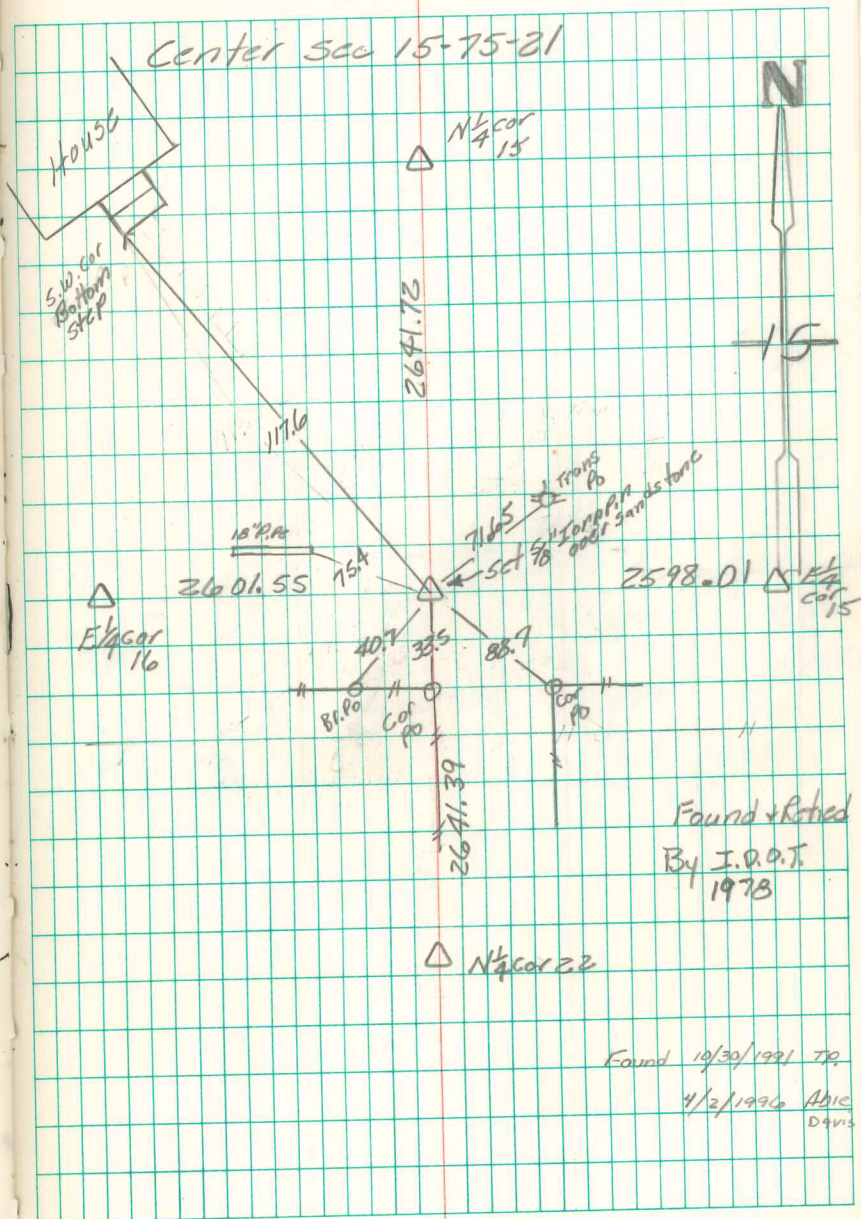 Center Sec 15-75-21
N
N 1/4 cor
15
House
S.W. Cor
Bottom
Step
2641.72
15
117.6
Trans
Po
71.65
Set 5/8" Iron Pin
over sandstone
18" P.Pe
75.4
2601.55
2598.01
E 1/4
cor
15
E 1/4 cor
16
40.7
33.5
88.7
Br. Po
Cor
Po
Cor
Po
2641.39
Found & Retied
By I.D.O.T.
1978
N 1/4 cor 22
Found 10/30/1991 T.P.
4/2/1996 Abie
Davis